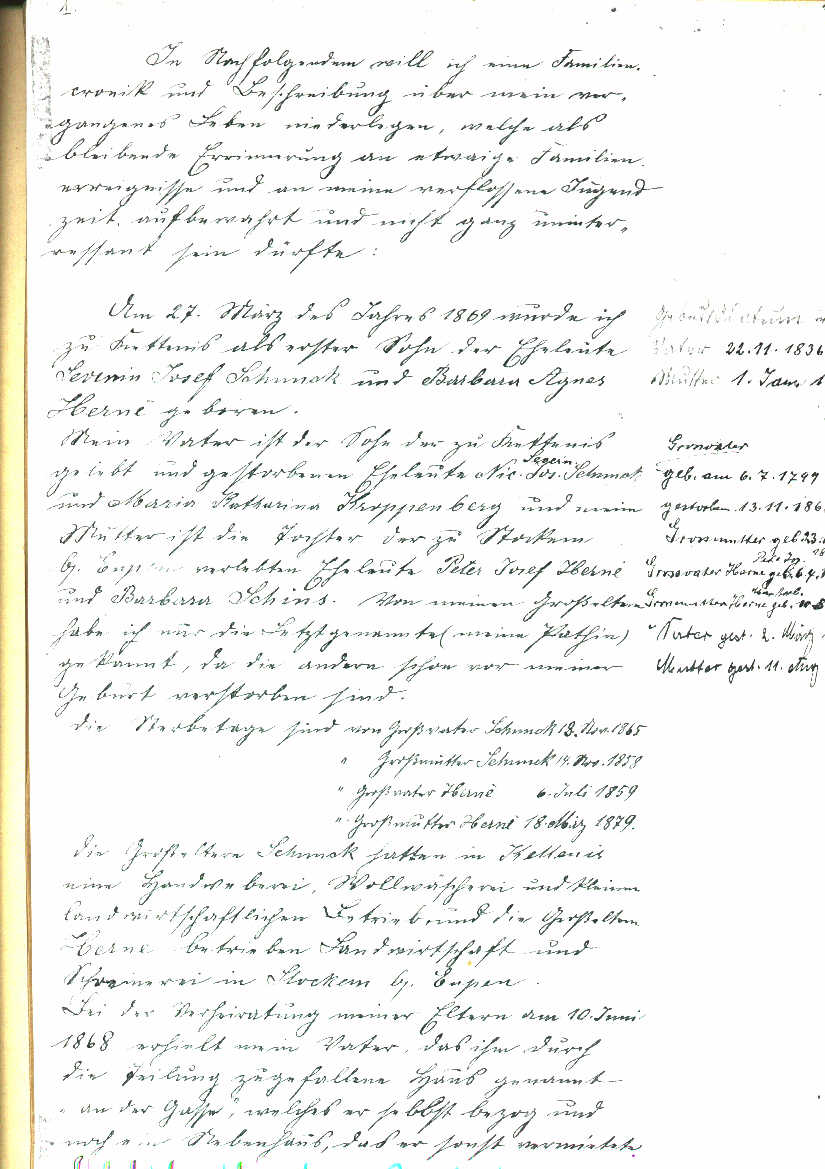 1.
In Nachfolgendem will ich eine Familien-
cronik und Beschreibung über mein ver-
gangenes Leben niederlegen, welche als
bleibende Errinnerung an etwaige Familien
erreignisse und an meine verflossene Jugend
zeit, aufbewahrt und nicht ganz uninter-
ressant sein dürfte:
Am 27. März des Jahres 1869 wurde ich
zu Kettenis als erster Sohn der Eheleute
Severin Josef Schunck und Barbara Agnes
Herné geboren.
Mein Vater ist der Sohn der zu Kettenis
gelebt und gestorbenen Eheleute Nic. Jos. Schunck
und Maria Katharina Kroppenberg und meine
Mutter ist die Tochter der zu Stockem
bj. Eupen verlebten Eheleute Peter Josef Herné
und Barbara Schins. Von meinen Großeltern
habe ich nur die Letztgenannte (meine Pathin)
gekannt, da die andern schon vor meiner
Geburt verstorben sind.
die Sterbetage sind von Großvater Schunck 13. Nov. 1865
" Großmutter Schunck 19. Nov. 1858
" Großvater Herné 6. Juli 1859
" Großmutter Herné 18. März 1879.
die Großeltern Schunck hatten in Kettenis
eine Handweberei, Wollwäscherei und kleinen
landwirtschaftlichen Betrieb, und die Großeltern
Herné betrieben Landwirtschaft und
Schreinerei in Stockem bj. Eupen.
Bei der Verheiratung meiner Eltern am 10. Juni
1868 erhielt mein Vater, das ihm durch
die Teilung zugefallene Haus genannt
"an der Gasse", welches er selbst bezog und
noch ein Nebenhaus, das er sonst vermietete
Geburtsdatum
Vater 22.11.1836
Mutter 1. Jan
Grosvater
geb. am 6.7.1799
gestorben 13.11.186
Grosmutter geb 23.
Grosvater Herne geb. 6.4.
Grosmutter Herne geb.
Vater gest. 2. März
Mutter gest. 11. Aug